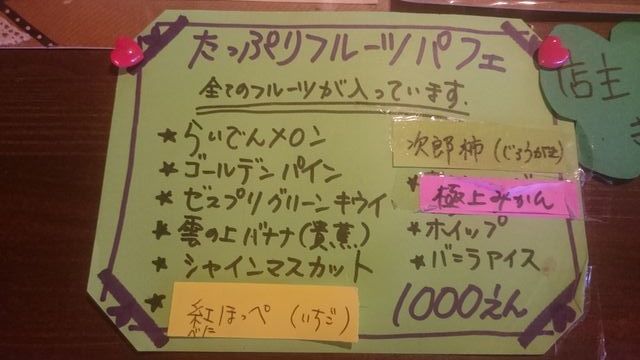 たっぷりフルーツパフェ
全てのフルーツが入っています.
★らいでんメロン
★ゴールデンパイン
★ゼスプリグリーンキウイ
★雲の上バナナ(貴蕉)
★シャインマスカット
★
紅ほっぺ (いちご)
べに
次郎柿 (じろうがき)
極上みかん
★ホイップ
★バニラアイス
1000えん
店主